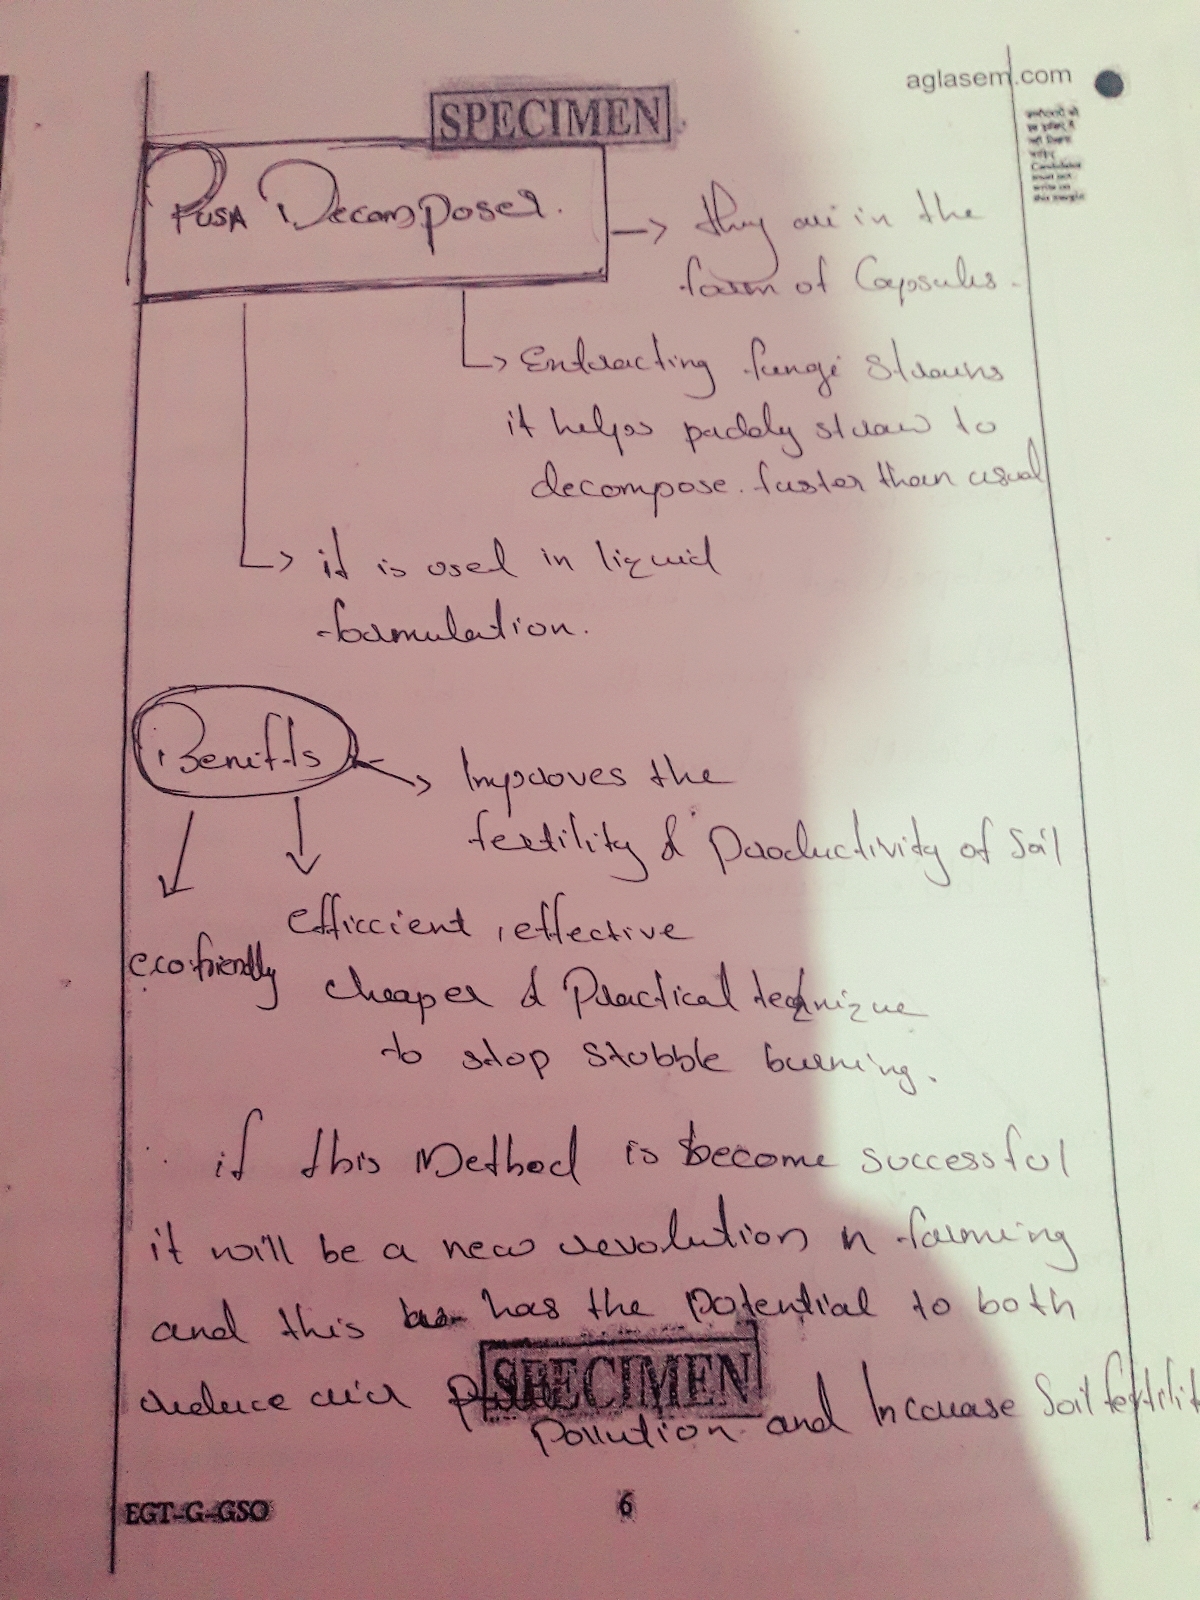 aglasem.com
SPECIMEN
Candidates
must not
write on
this margin
PUSA Decomposer.
they are in the
form of Capsules.
Extracting fungi strains
it helps paddy straw to
decompose. faster than usual
it is used in liquid
formulation.
Benifits
Improves the
fertility & Productivity of Soil
efficcient, effective
ecofriendly
cheaper & Practical technique
to stop stubble burning.
if this Method is become successful
it will be a new revolution in farming
and this has the potential to both
SPECIMEN
reduce air
Pollution and Increase Soil fertilit
EGT-G-GSO
6